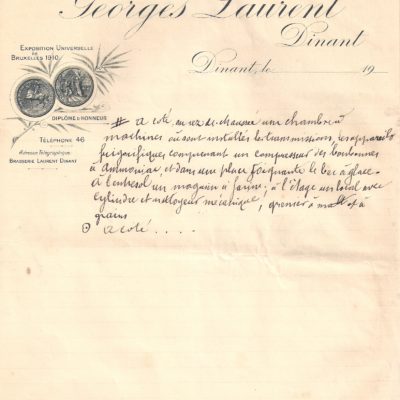 Georges Laurent
Dinant
Exposition Universelle
de
Bruxelles 1910
Dinant, le 19
Diplôme d'Honneur
Téléphone 46
Adresse Télégraphique
Brasserie Laurent Dinant
# a coté, au rez de chaussée une chambre à
machines où sont installés les transmissions, les appareils
frigorifiques comprenant un compresseur des bonbonnes
à ammoniac et dans une place joignante le bac à glace.
A l'entresol un magasin à farine; à l'étage un local avec
cylindre et nettoyeur mécanique, grenier à malt et à
grains
⊙ a coté . . . . .